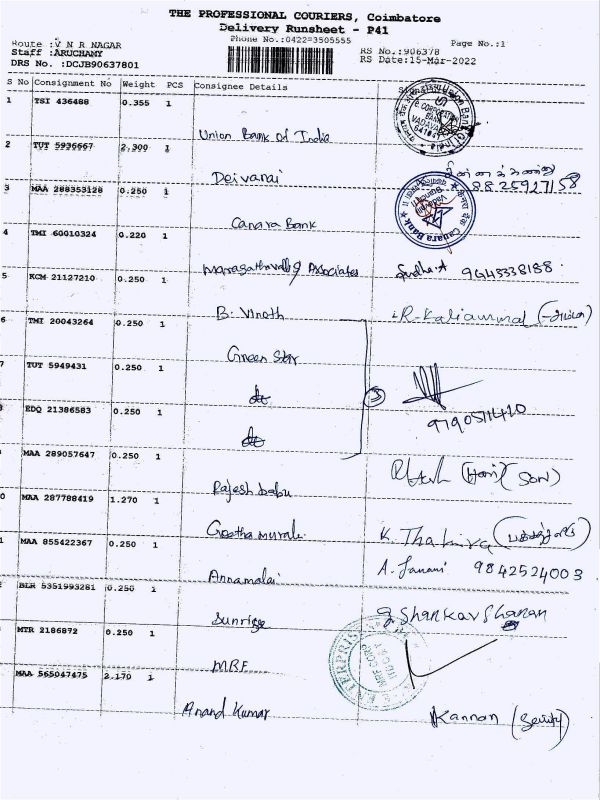 THE PROFESSIONAL COURIERS, Coimbatore
Delivery Runsheet - P41
Phone No.:0422-3505555
Page No.:1
Route :V N R NAGAR
Staff :ARUCHAMY
DRS No. :DCJB90637801
RS No.:906378
RS Date:15-Mar-2022
S No Consignment No Weight PCS Consignee Details
1 TSI 436488 0.355 1
Union Bank of India
2 TUT 5936667 2.300 1
Deivanai 8825927158
3 MAA 288353128 0.250 1
Canara Bank
Canara Bank
4 TMI 60010324 0.220 1
Maragathavalli & Associates Sudha.A 9643338188
5 KCM 21127210 0.250 1
B. Vinoth R. Kaliammal
6 TMI 20043264 0.250 1
Green Star
7 TUT 5949431 0.250 1
do 3
8 EDQ 21386583 0.250 1
do 9790511410
MAA 289057647 0.250 1
Rajesh babu (Hari) (SON)
0 MAA 287788419 1.270 1
Geetha murali K. Thakira
1 MAA 855422367 0.250 1
Annamalai A. Janani 9842524003
BLR 5351993281 0.250 1
Sunrise g Shankar Shanan
MTR 2186872 0.250 1
MRF
MRF CORP
MAA 565047475 2.170 1
Anand Kumar Kannan